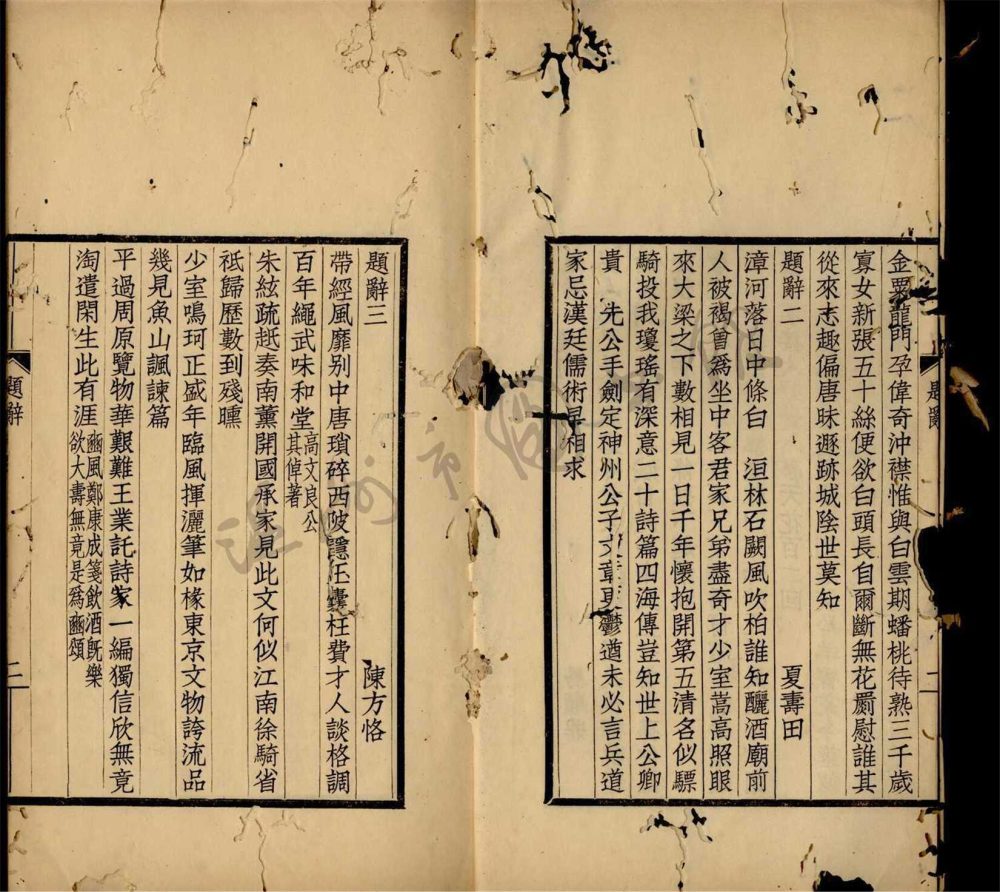 金粟龍門孕偉奇沖襟惟與白雲期蟠桃待熟三千歲
寡女新張五十絲便欲白頭長自爾斷無花罽慰誰其
從來志趣偏唐昧遯跡城陰世莫知
題辭二
夏壽田
漳河落日中條白 洹林石闕風吹柏誰知釃酒廟前
人被褐曾爲坐中客君家兄弟盡奇才少室嵩高照眼
來大梁之下數相見一日千年懷抱開第五清名似驃
騎投我瓊瑤有深意二十詩篇四海傳豈知世上公卿
貴 先公手劍定神州公子文章更鬱遒未必言兵道
家忌漢廷儒術早相求
題辭
二
題辭三
陳方恪
帶經風靡别中唐瑣碎西陂隱囊枉費才人談格調
百年繩武味和堂高文良公其倬著
朱絃疏越奏南薰開國承家見此文何似江南徐騎省
祗歸歷數到殘曛
少室鳴珂正盛年臨風揮灑筆如椽東京文物誇流品
幾見魚山諷諫篇
平過周原覽物華艱難王業託詩家一編獨信欣無竟
淘遣閑生此有涯豳風鄭康成箋飲酒旣樂欲大壽無竟是爲豳頌
題辭
二